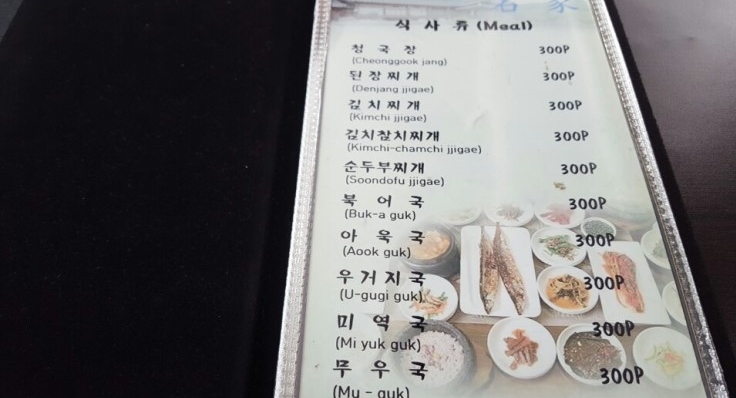 식 사 류 (Meal)
청 국 장 300P
(Cheonggook jang)
된 장 찌 개 300P
(Denjang jjigae)
김 치 찌 개 300P
(Kimchi jjigae)
김치참치찌개 300P
(Kimchi-chamchi jjigae)
순두부찌개 300P
(Soondofu jjigae)
북 어 국 300P
(Buk-a guk)
아 욱 국 300P
(Aook guk)
우 거 지 국 300P
(U-gugi guk)
미 역 국 300P
(Mi yuk guk)
무 우 국 300P
(Mu - guk)